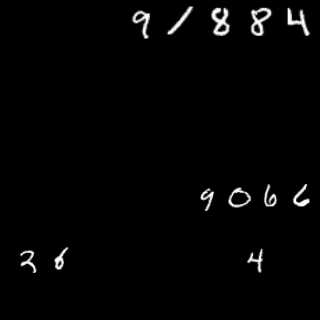 91884
9066
26 4